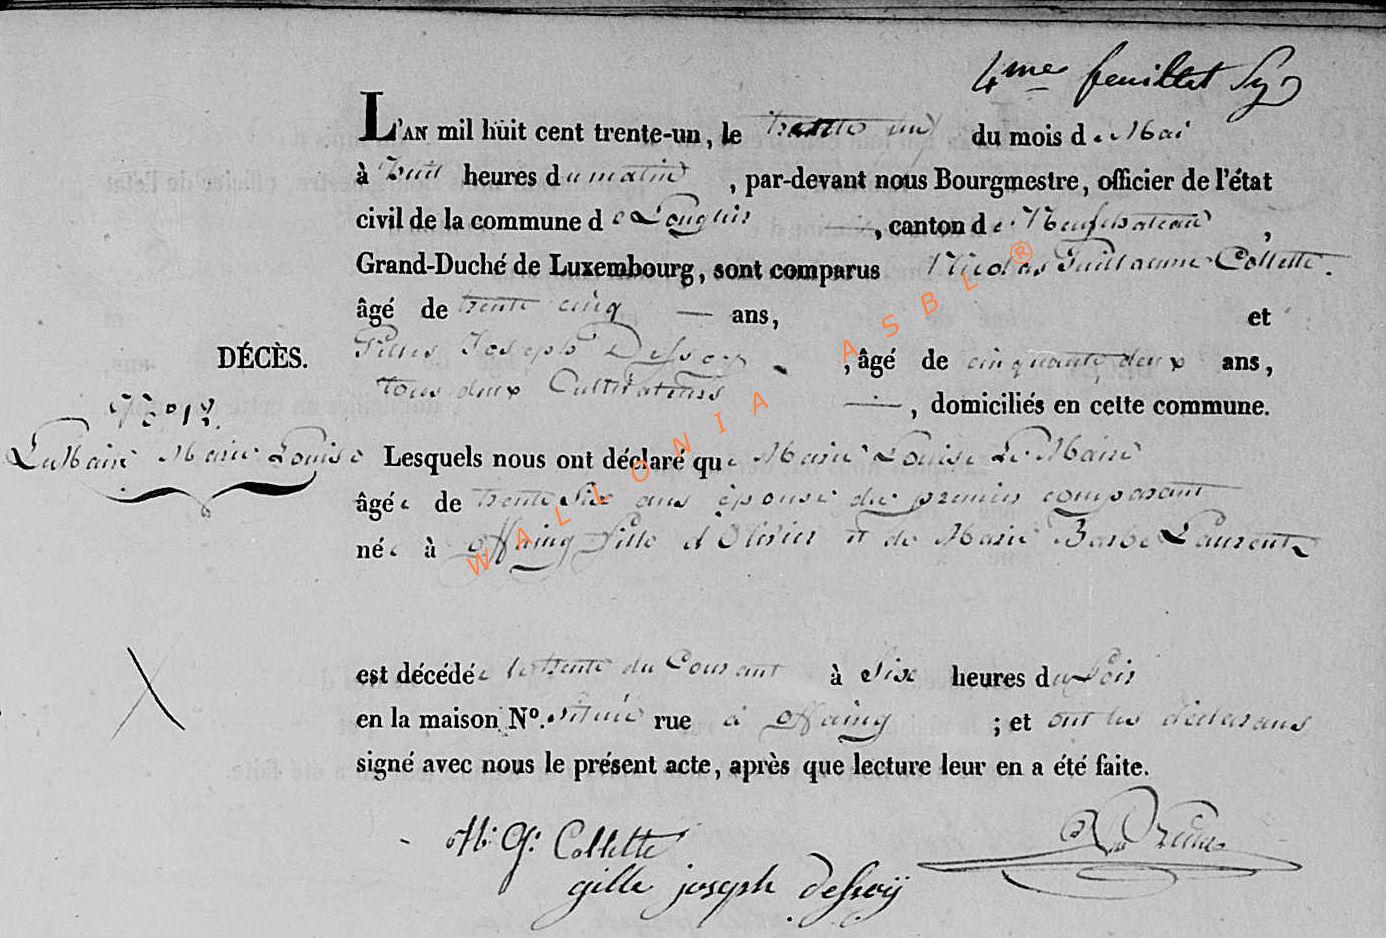 4me feuillet
L'AN mil huit cent trente-un, le trente un du mois de Mai
à huit heures du matin, par-devant nous Bourgmestre, officier de l'état
civil de la commune de Longlier, canton de Neufchateau,
Grand-Duché de Luxembourg, sont comparus Nicolas Guillaume Collette.
âgé de trente cinq ans, et
Gilles Joseph Dessoy, âgé de cinquante deux ans,
tous deux Cultivateurs, domiciliés en cette commune.
DÉCÈS.
N° 12.
LeMaire Marie Louise
Lesquels nous ont déclaré que Marie Louise Le Maire
âgée de trente Six ans épouse du premier comparant
née à offaing fille d'Olivier et de Marie Barbe Laurent
est décédée le trente du Courant à Six heures du Soir
en la maison N°. située rue à offaing ; et ont les déclarans
signé avec nous le présent acte, après que lecture leur en a été faite.
N: G: Collette
gille joseph dessoÿ
WALLONIA ASBL ®